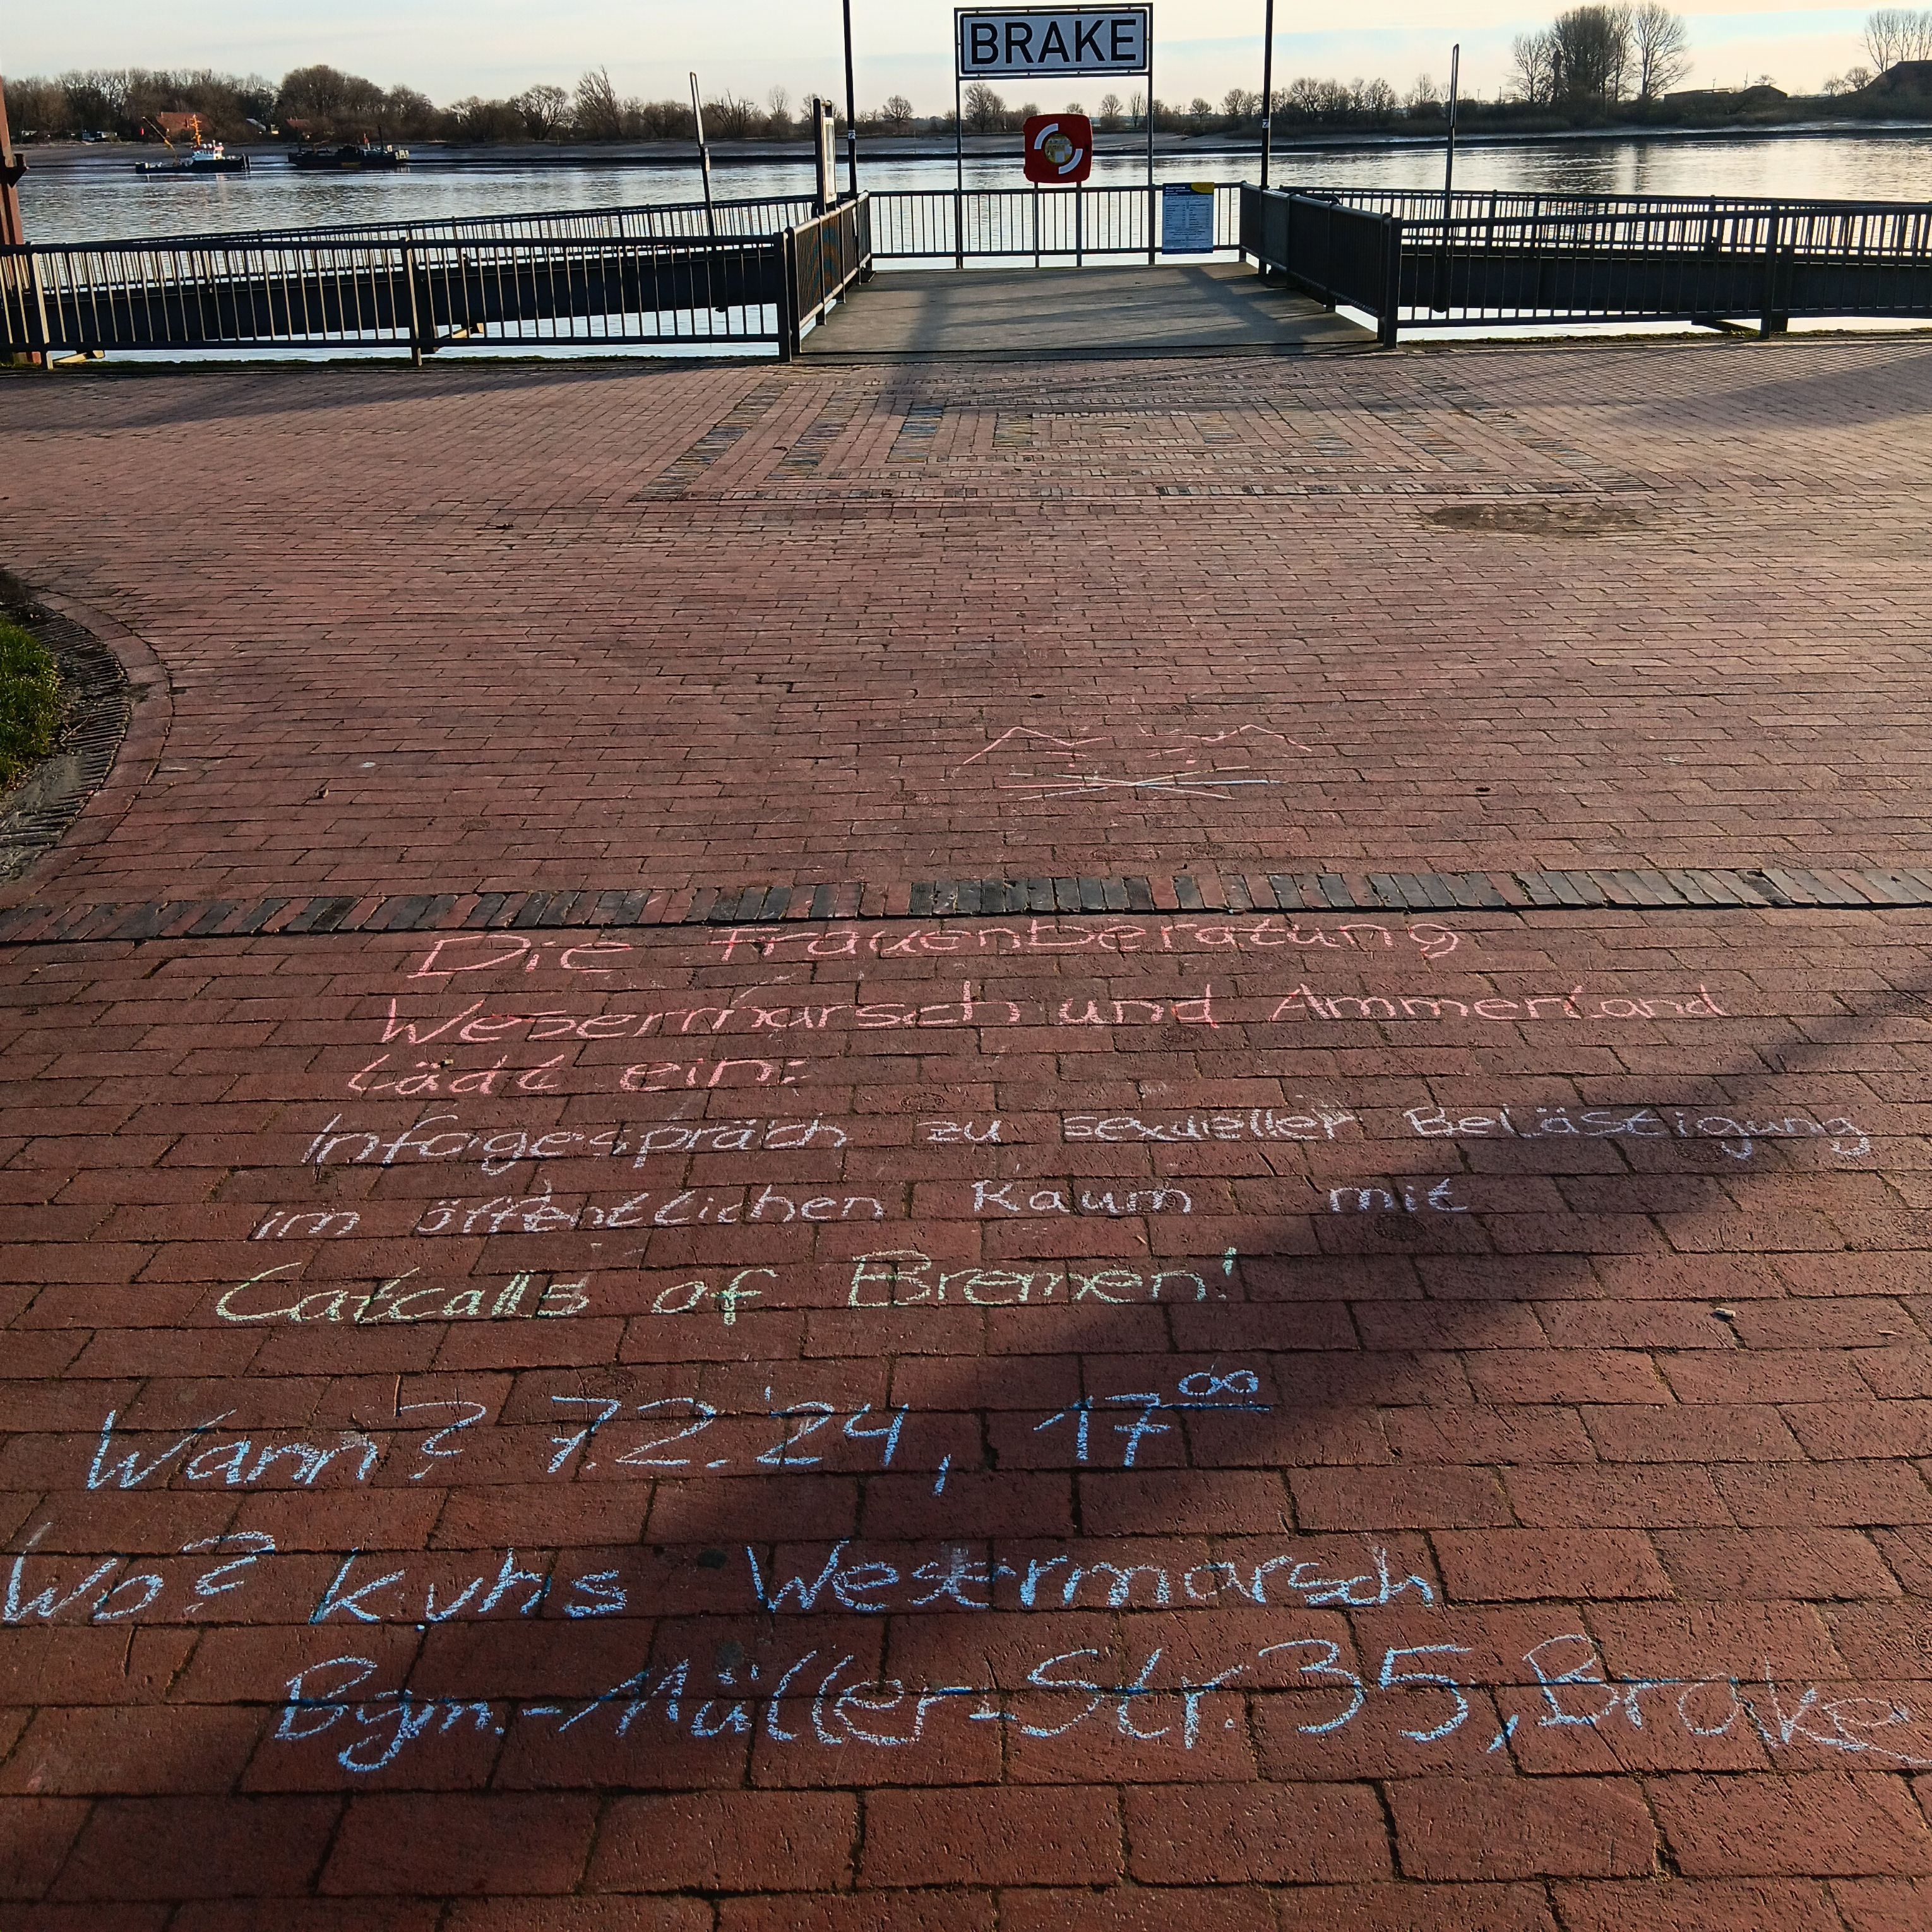 BRAKE
Die Frauenberatung
Wesermarsch und Ammerland
lädt ein:
Infogespräch zu sexueller Belästigung
im öffentlichen Raum mit
Catcalls of Bremen!
Wann? 7.2.24, 17⁰⁰
Wo? kvhs Wesermarsch
Bgm.-Müller-Str. 35, Brake